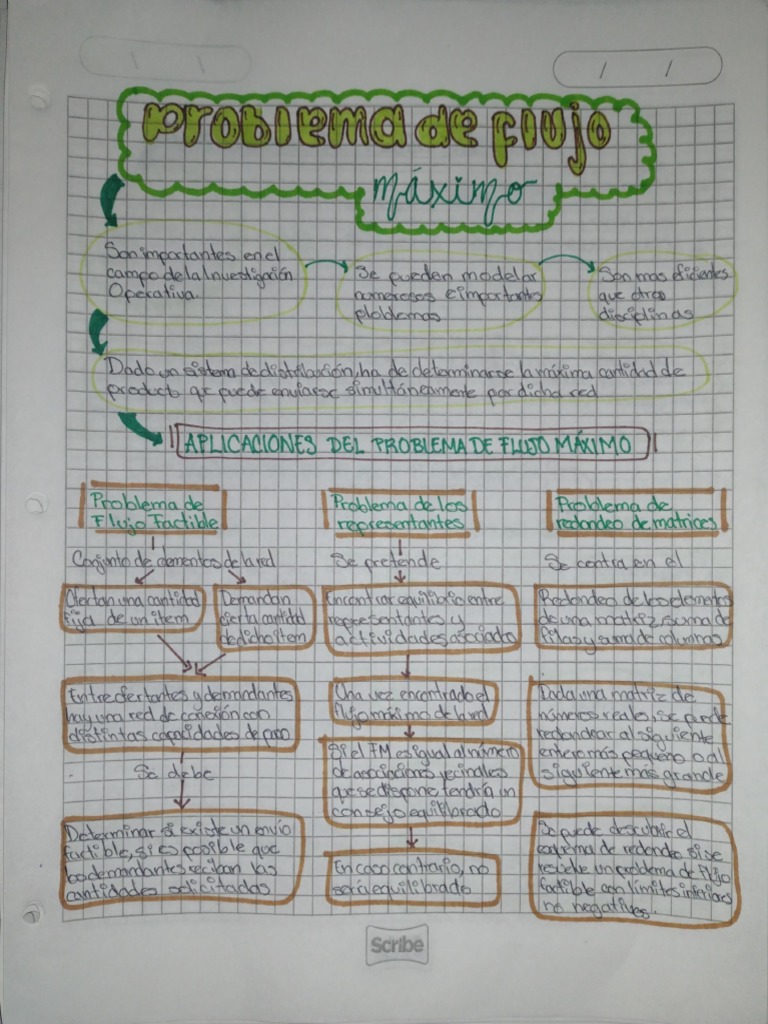 Problema de flujo
máximo
Son importantes en el
campo de la Investigación
Operativa.
Se pueden modelar
numerosos e importants
ploblemas
Son mas eficientes
que otras
disciplinas
Dado un sistema de distribución, ha de determinarse la máxima cantidad de
producto que puede enviarse simultáneamente por dicha red
APLICACIONES DEL PROBLEMA DE FLUJO MÁXIMO
Problema de
Flujo Factible
Conjunto de elementos de la red
Ofertan una cantidad
fija de un item
Demandan
cierta cantidad
de dicho item
Entre ofertantes y demandantes
hay una red de conexión con
distintas capacidades de paso
Se debe
Determinar si existe un envío
factible, si es posible que
los demandantes reciban las
cantidades solicitadas
Problema de los
representantes
Se pretende
Encontrar equilibrio entre
representantes y
actividades asociado
Una vez encontrado el
flujo máximo de la red
Si el FM es igual al número
de asociaciones vecinales
que se dispone tendría un
consejo equilibrado
En caso contrario, no
será equilibrado
Problema de
redondeo de matrices
Se contra en el
Redondeo de los elementos
de una matriz, suma de
filas y suma de columnas
Dada una matriz de
números reales, se puede
redondear al siguiente
entero más pequeño o al
siguiente más grande
Se puede descubrir el
esquema de redondeo si se
resuelve un problema de Flujo
factible con límites inferiores
no negativos.
Scribe